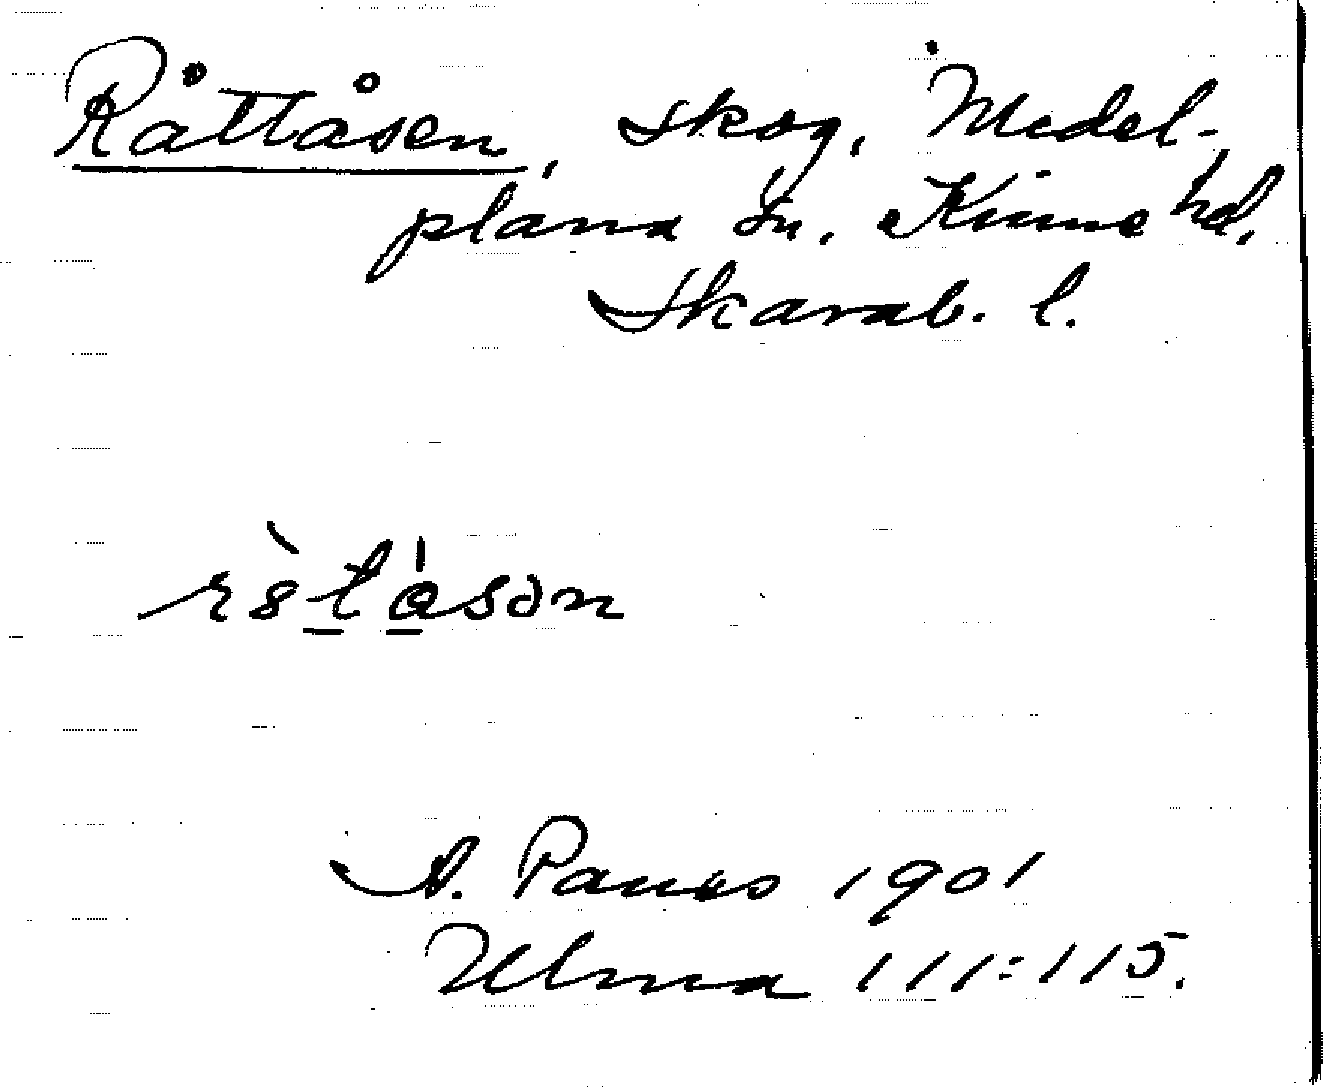 Råttåsen, skog, Medel-
plana sn. Kinne hd.
Skarab. l.
A. Pauss 1901
Ulma 111:115.